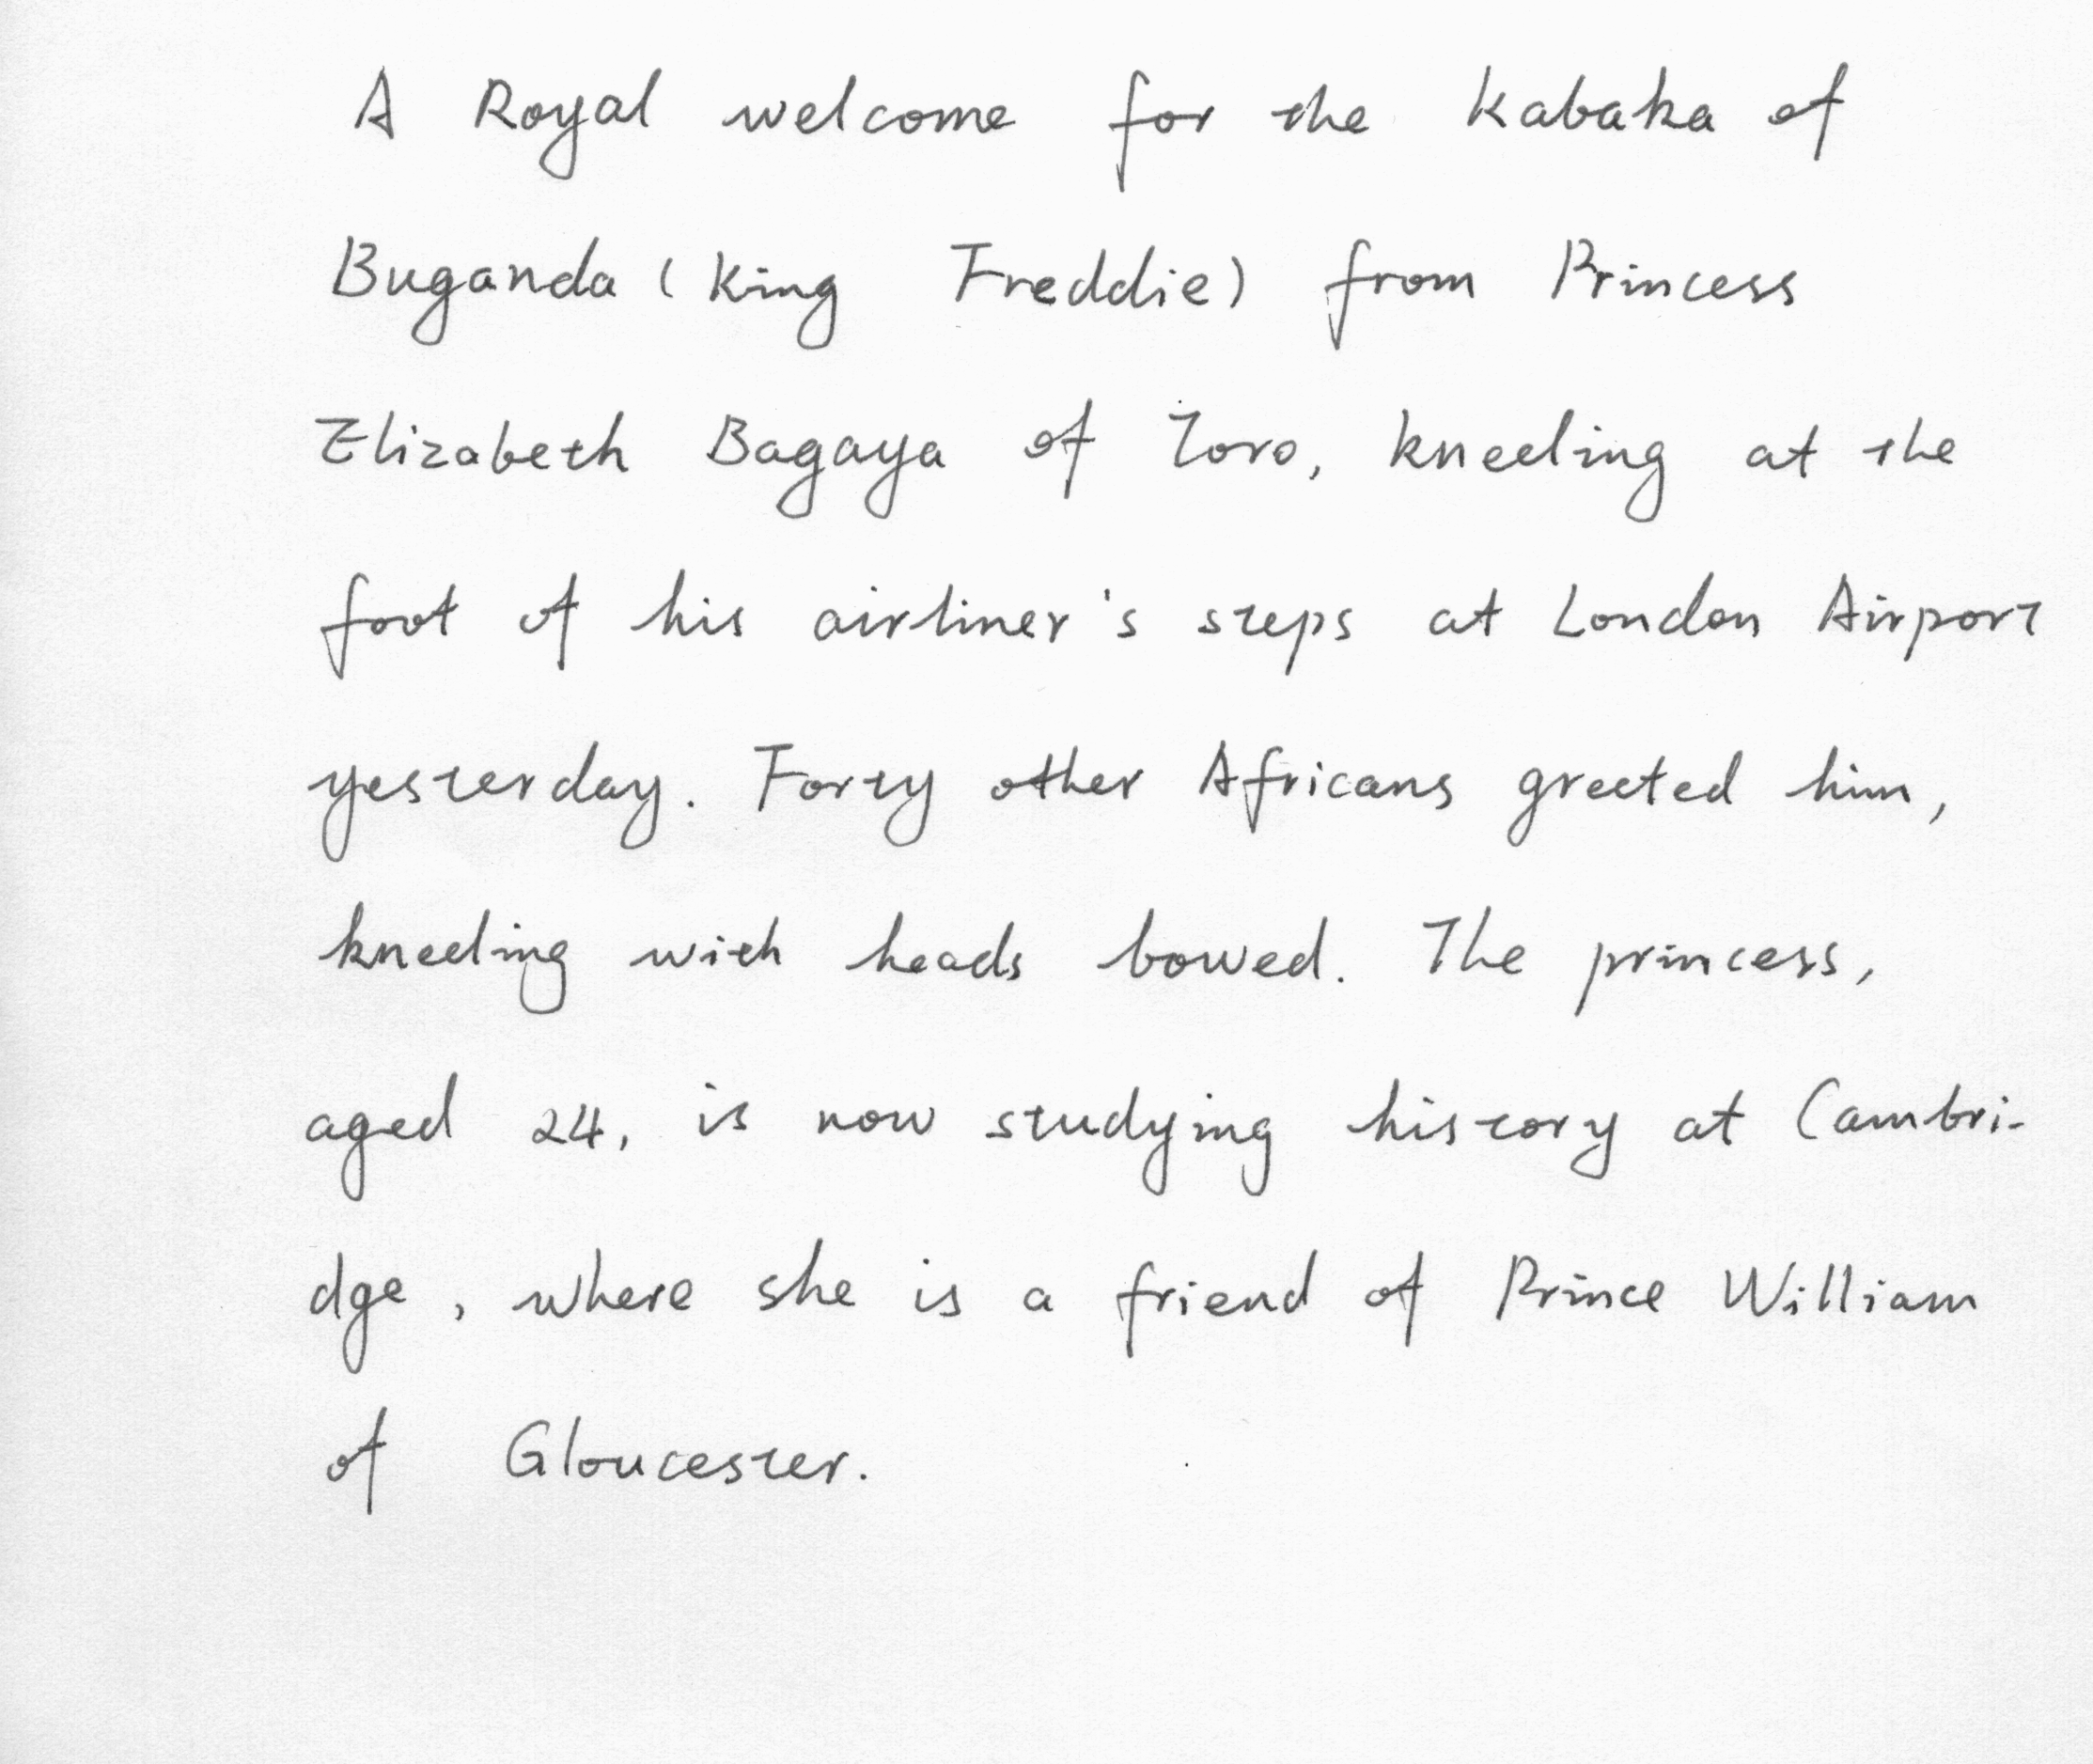 A Royal welcome for the Kabaka of
Buganda (King Freddie) from Princess
Elizabeth Bagaya of Toro, kneeling at the
foot of his airliner's steps at London Airport
yesterday. Forty other Africans greeted him,
kneeling with heads bowed. The princess,
aged 24, is now studying history at Cambri-
dge, where she is a friend of Prince William
of Gloucester.